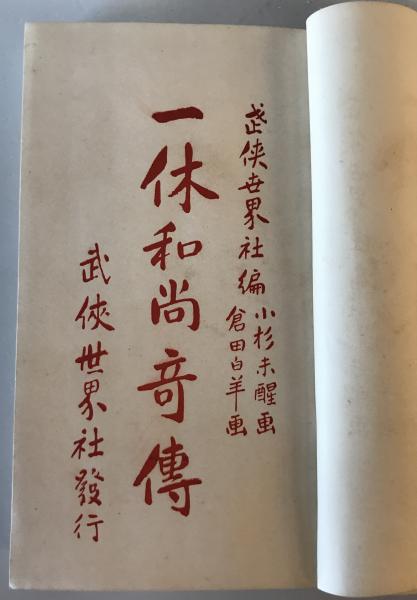 武侠世界社編
小杉未醒画
倉田白羊画
一休和尚奇傳
武侠世界社發行